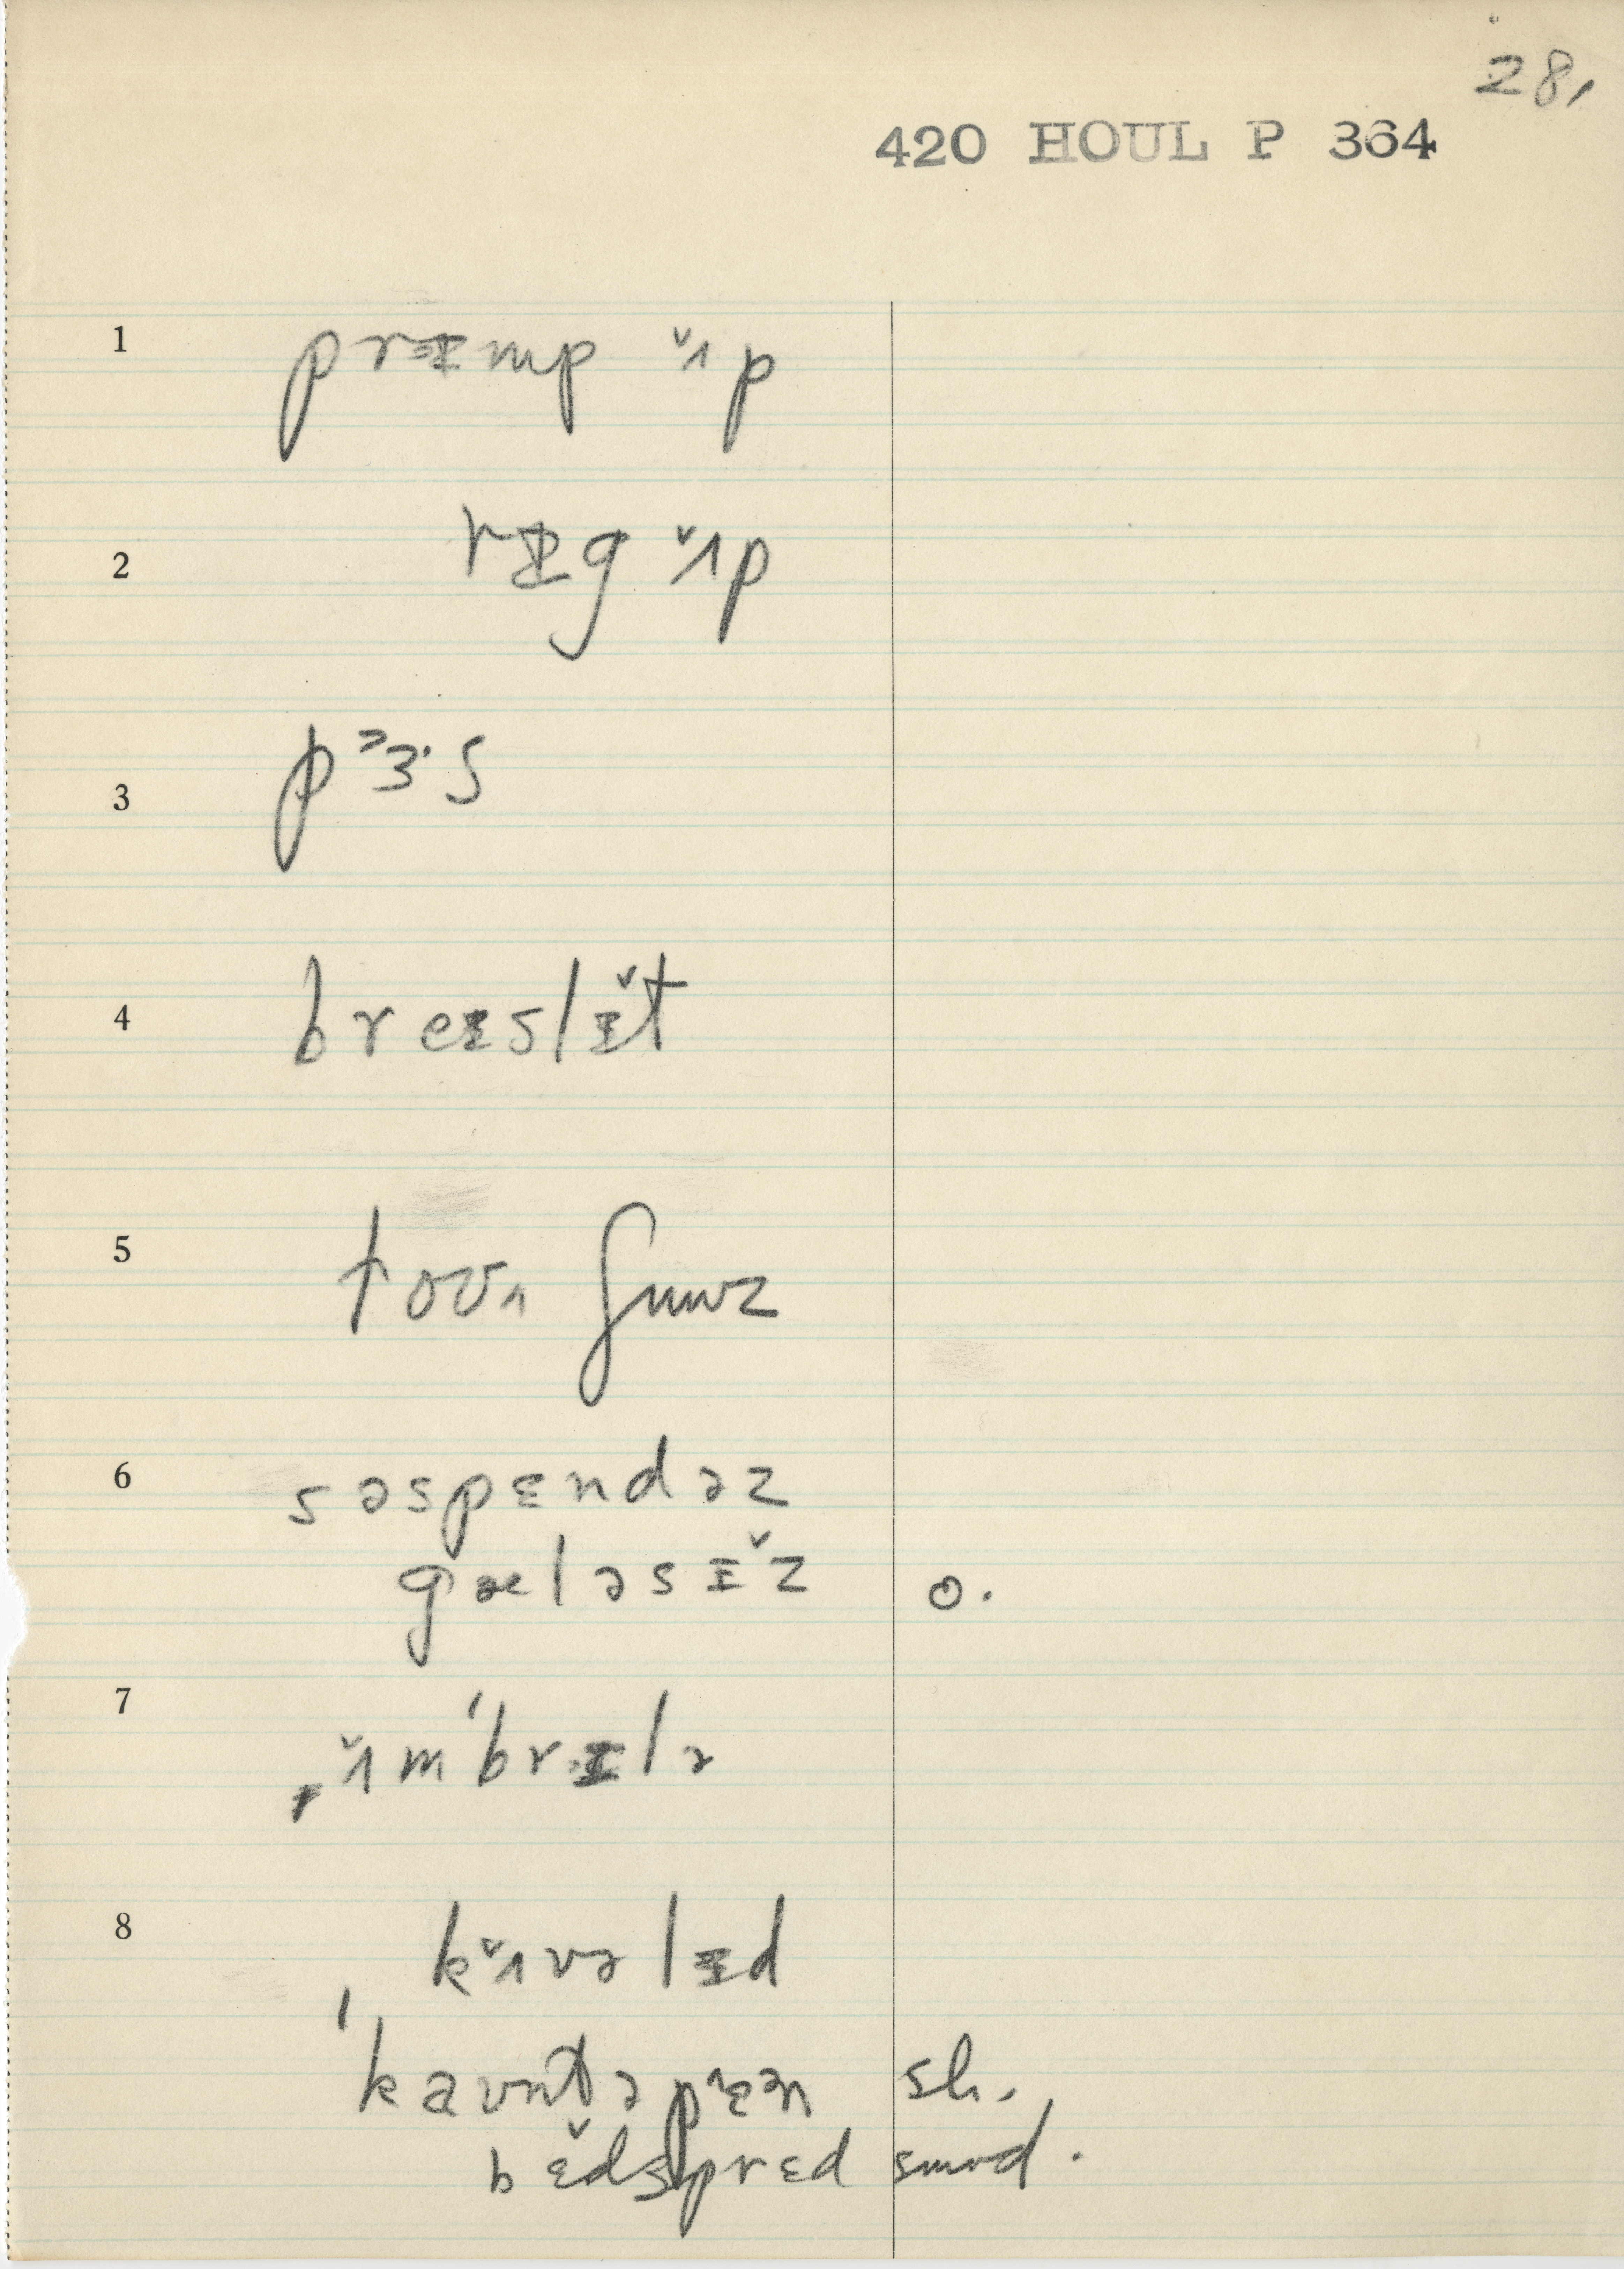 28,
420 HOUL P 364
1 prɪmp ʌ̌p
2 rɪg ʌ̌p
3 pɜ·s
4 breɪslɪ̌t
5 toʊn
6 səspɛndəz
gæləsɪ̌z o.
7 ˌʌ̌mˈbrɛlə
8 kʌ̌vəlɪd
ˈkaʊntəpɛən sh.
bɛ̌dsprɛd